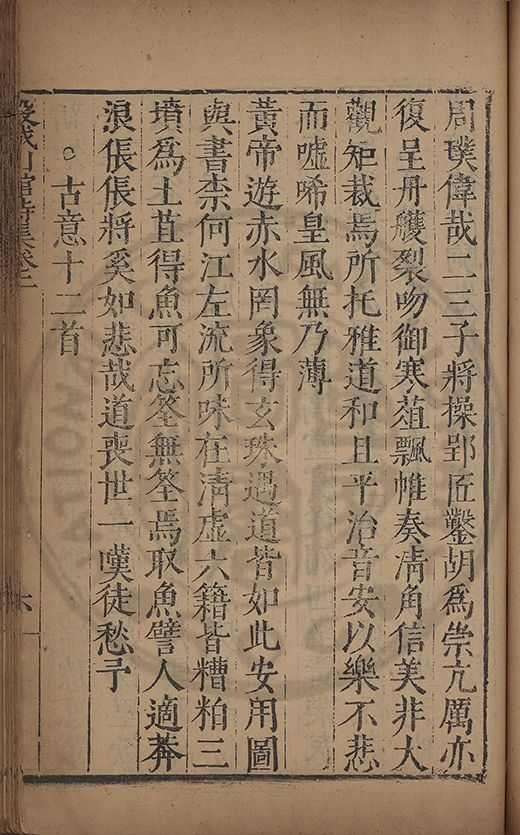 周璞偉哉二三子將操郢匠鑿胡為崇亢厲亦
復呈丹雘裂吻御寒菹飄帷奏清角信美非大
觀矩裁焉所托雅道和且平治音安以樂不悲
而噓唏皇風無乃薄
黃帝遊赤水罔象得玄珠遇道皆如此安用圖
與書柰何江左流所味在清虛六籍皆糟粕三
墳為土苴得魚可忘筌無筌焉取魚譬人適莽
浪倀倀將奚如悲哉道喪世一嘆徒愁予
。古意十二首
館詩集卷一
六